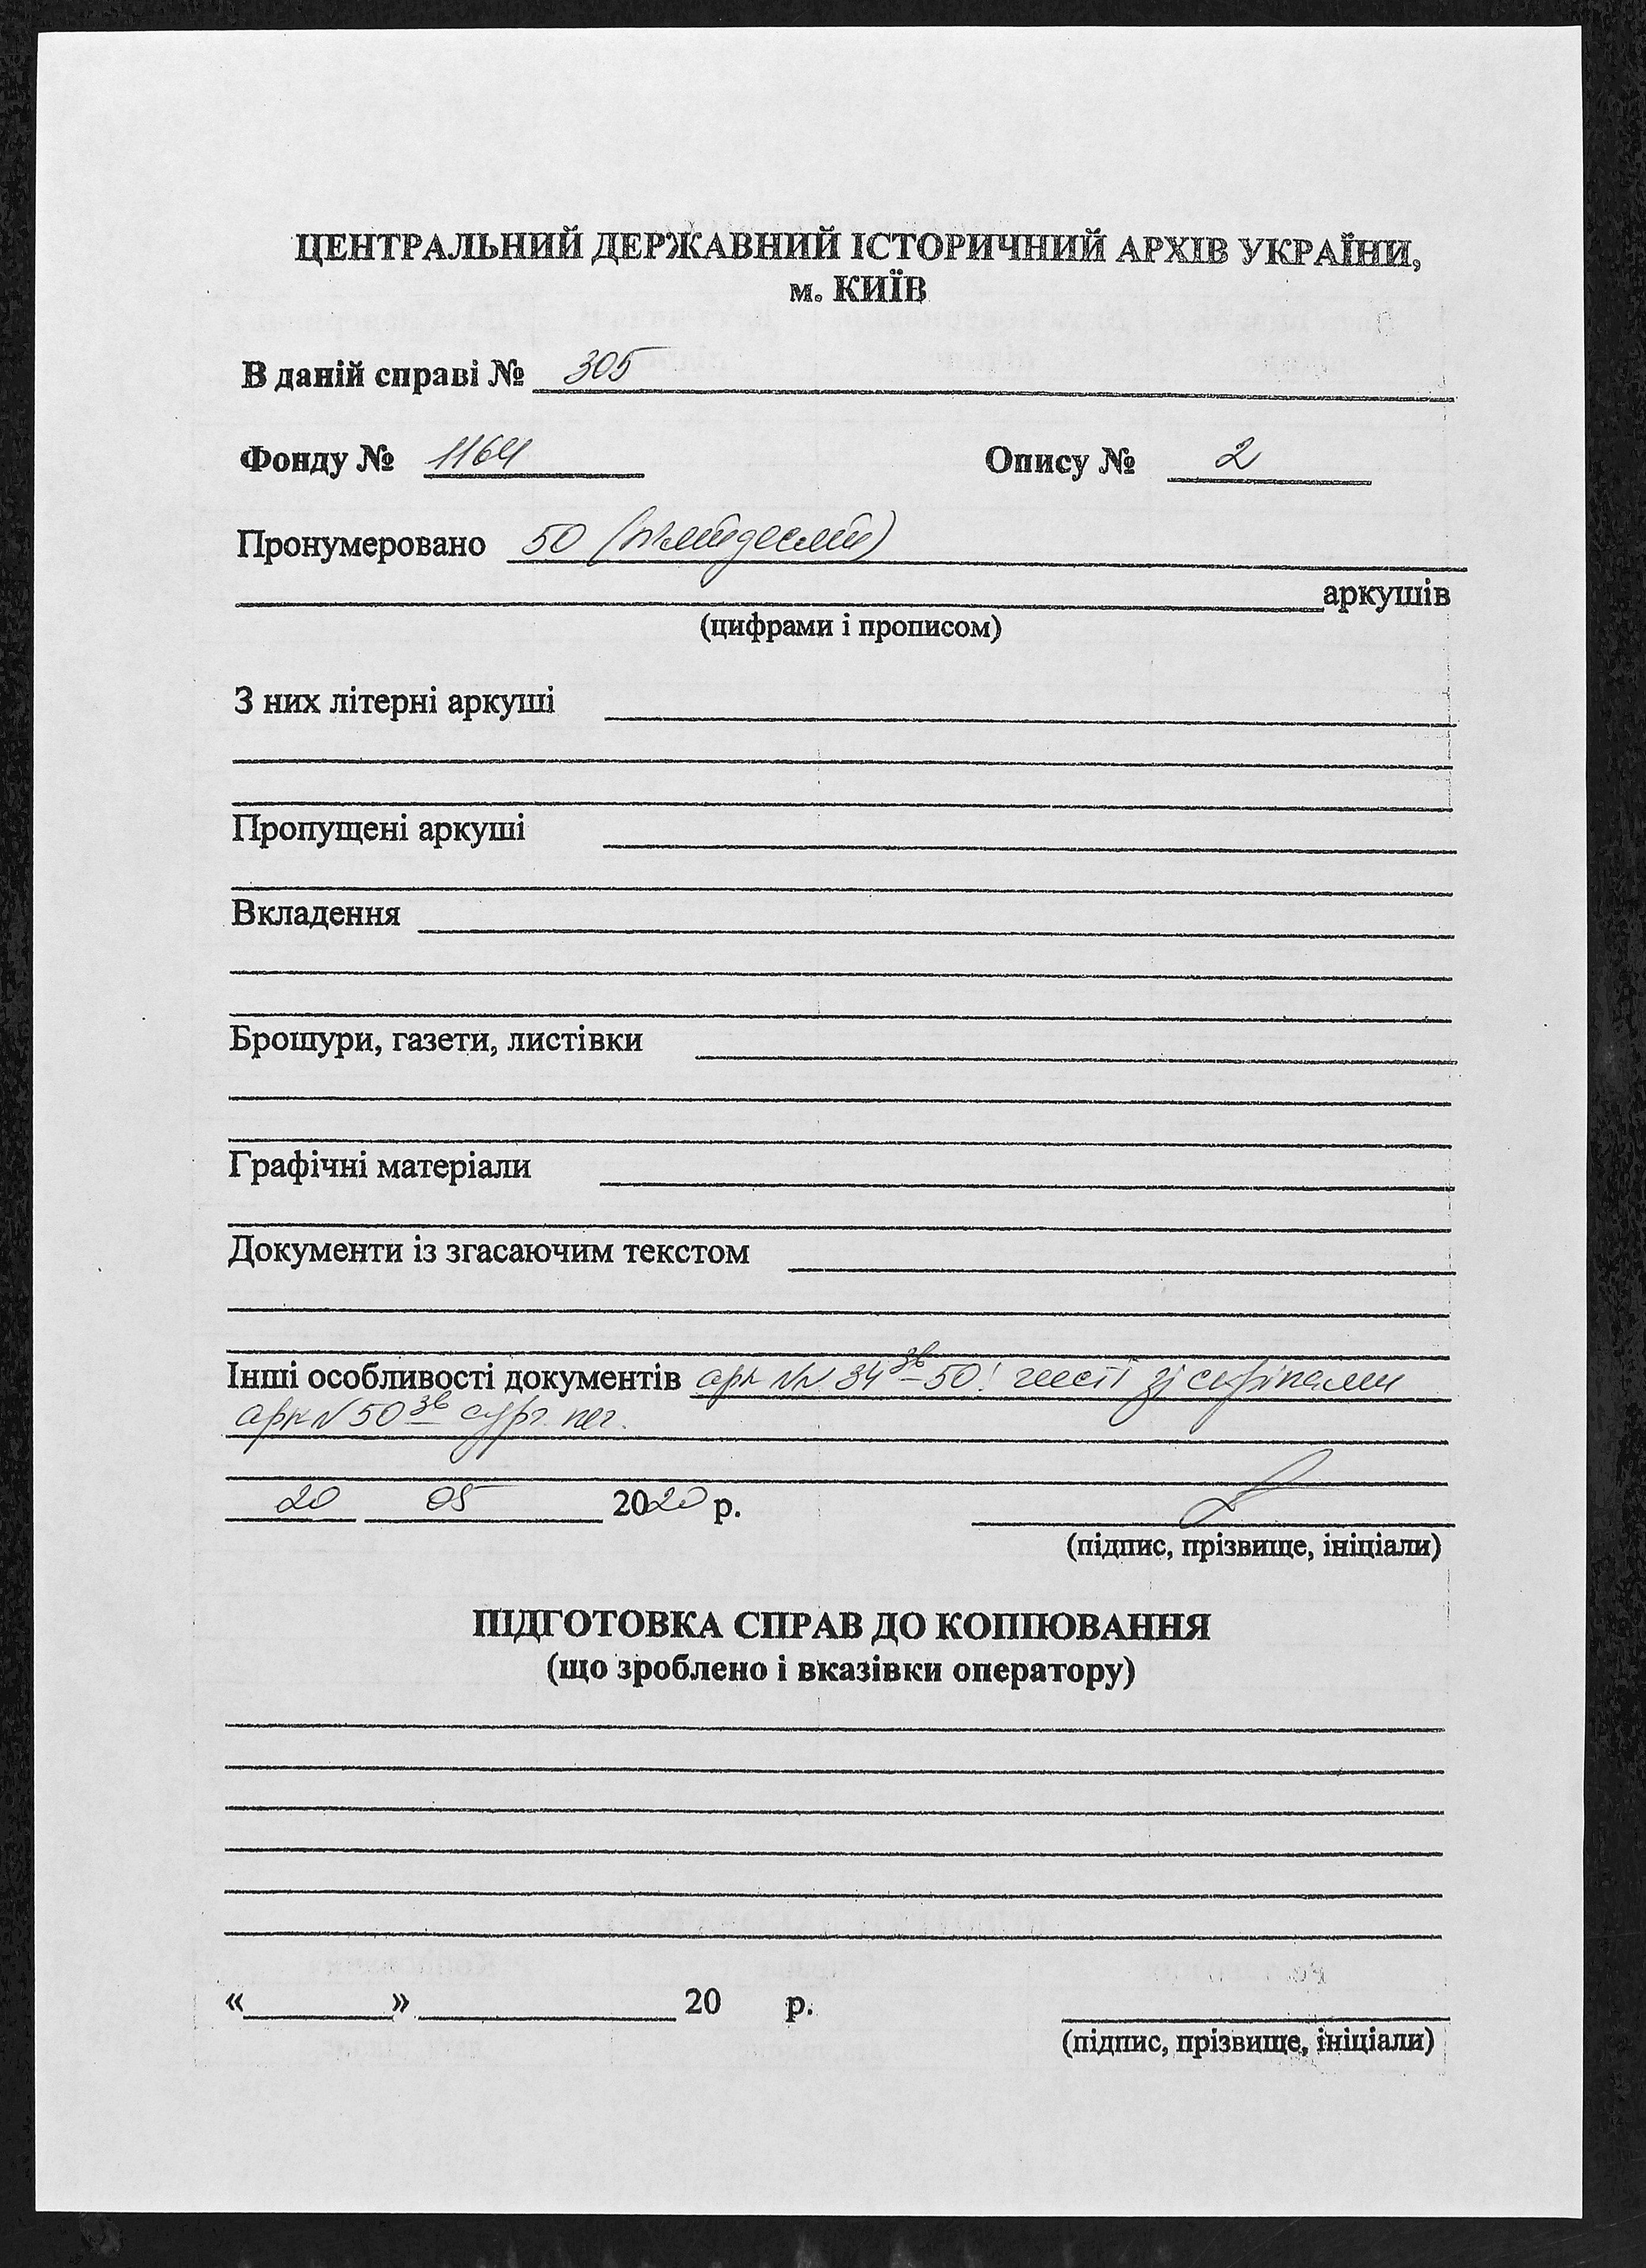 ЦЕНТРАЛЬНИЙ ДЕРЖАВНИЙ ІСТОРИЧНИЙ АРХІВ УКРАЇНИ,
м. КИЇВ
В даній справі № 305
Фонду № 1164 Опису № 2
Пронумеровано 50 (п'ятдесят)
аркушів
(цифрами і прописом)
З них літерні аркуші
Пропущені аркуші
Вкладення
Брошури, газети, листівки
Графічні матеріали
Документи із згасаючим текстом
Інші особливості документів арк №№ 34зв–50: чисті зі скріпами
арк №50зв сург. печ.
20 05 2020 р.
(підпис, прізвище, ініціали)
ПІДГОТОВКА СПРАВ ДО КОПІЮВАННЯ
(що зроблено і вказівки оператору)
«       »        20      р.
(підпис, прізвище, ініціали)